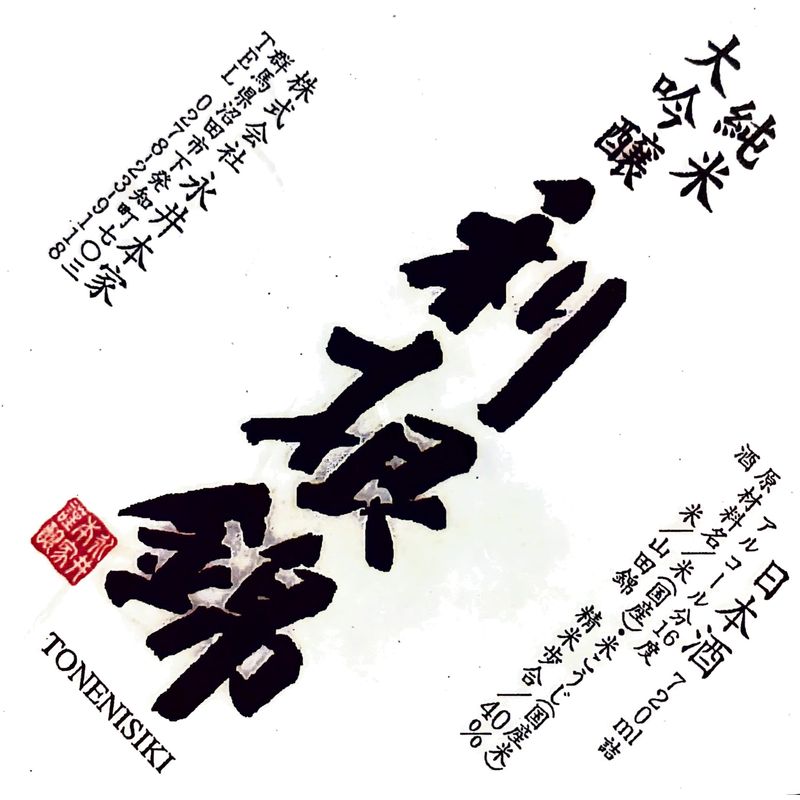 純米
大吟醸
利根錦
永井
本家
謹醸
TONENISIKI
株式会社 永井本家
群馬県沼田市下発知町七〇三
TEL 0278-23-9118
日本酒 720ml詰
アルコール分16度
原材料名/米(国産)・米こうじ(国産米)
酒米/山田錦 精米歩合/40%